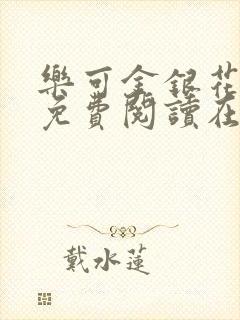 樂可金銀花
免費閱讀在
戴水蓮